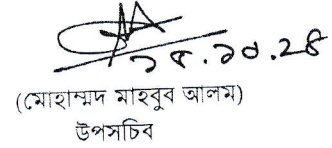 ১৫.১০.২৪
(মোহাম্মদ মাহবুব আলম)
উপসচিব